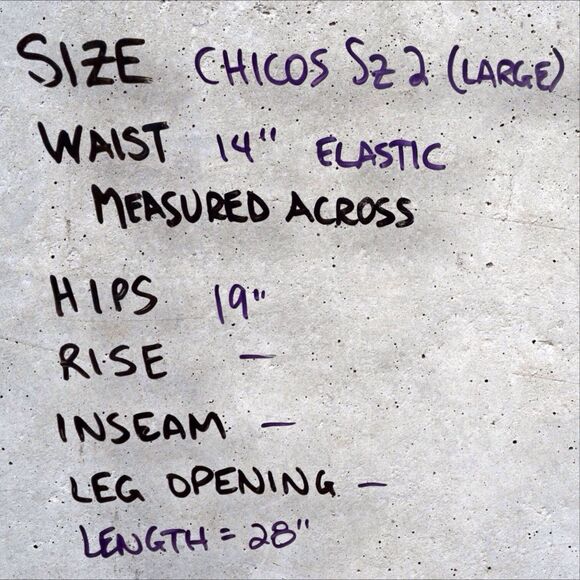 SIZE CHICOS SZ 2 (LARGE)
WAIST 14" ELASTIC
MEASURED ACROSS
HIPS 19"
RISE —
INSEAM —
LEG OPENING —
LENGTH = 28"